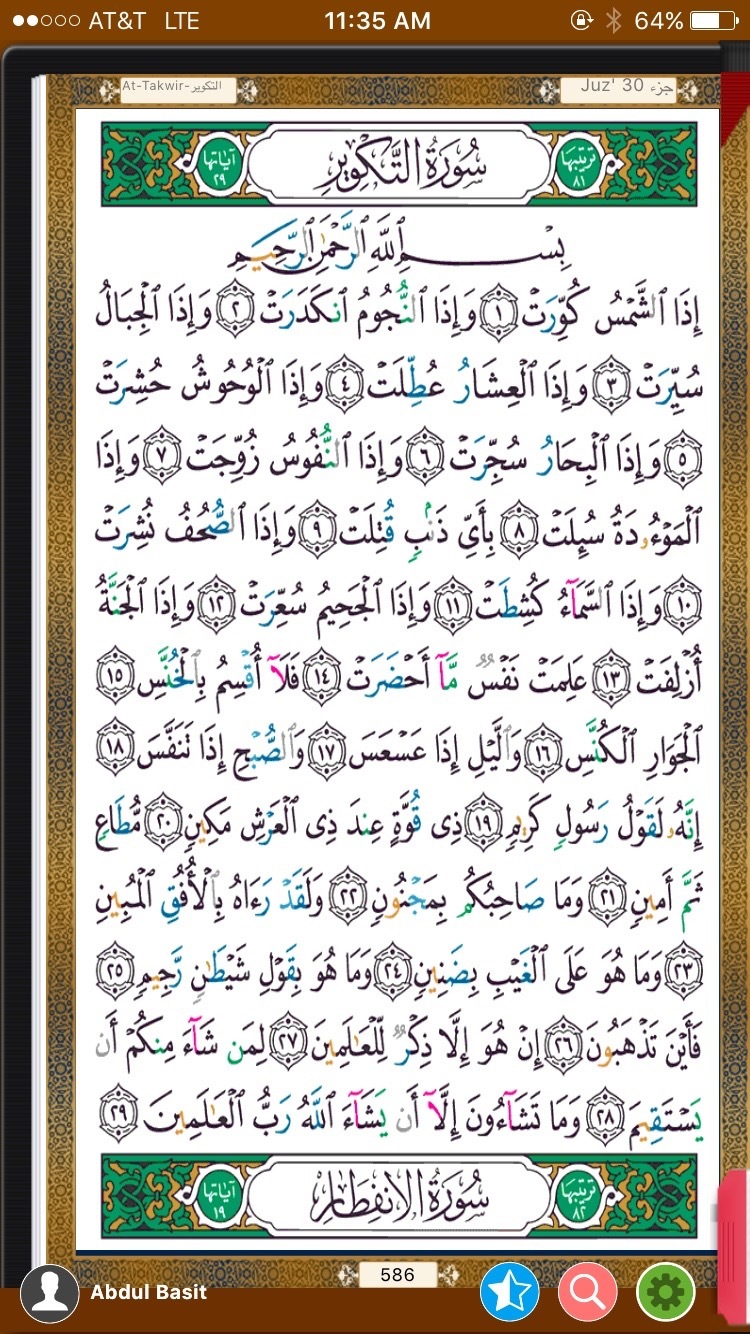 AT&T LTE 11:35 AM 64%
At-Takwir-التكوير Juz' 30 جزء
ترتيبها ٨١ سُورَةُ التَّكْوِيرِ آياتها ٢٩
بِسْمِ ٱللَّهِ ٱلرَّحْمَٰنِ ٱلرَّحِيمِ
إِذَا ٱلشَّمْسُ كُوِّرَتْ ١ وَإِذَا ٱلنُّجُومُ ٱنكَدَرَتْ ٢ وَإِذَا ٱلْجِبَالُ
سُيِّرَتْ ٣ وَإِذَا ٱلْعِشَارُ عُطِّلَتْ ٤ وَإِذَا ٱلْوُحُوشُ حُشِرَتْ
٥ وَإِذَا ٱلْبِحَارُ سُجِّرَتْ ٦ وَإِذَا ٱلنُّفُوسُ زُوِّجَتْ ٧ وَإِذَا
ٱلْمَوْءُۥدَةُ سُئِلَتْ ٨ بِأَىِّ ذَنۢبٍ قُتِلَتْ ٩ وَإِذَا ٱلصُّحُفُ نُشِرَتْ
١٠ وَإِذَا ٱلسَّمَآءُ كُشِطَتْ ١١ وَإِذَا ٱلْجَحِيمُ سُعِّرَتْ ١٢ وَإِذَا ٱلْجَنَّةُ
أُزْلِفَتْ ١٣ عَلِمَتْ نَفْسٌ مَّآ أَحْضَرَتْ ١٤ فَلَآ أُقْسِمُ بِٱلْخُنَّسِ ١٥
ٱلْجَوَارِ ٱلْكُنَّسِ ١٦ وَٱلَّيْلِ إِذَا عَسْعَسَ ١٧ وَٱلصُّبْحِ إِذَا تَنَفَّسَ ١٨
إِنَّهُۥ لَقَوْلُ رَسُولٍ كَرِيمٍ ١٩ ذِى قُوَّةٍ عِندَ ذِى ٱلْعَرْشِ مَكِينٍ ٢٠ مُّطَاعٍ
ثَمَّ أَمِينٍ ٢١ وَمَا صَاحِبُكُم بِمَجْنُونٍ ٢٢ وَلَقَدْ رَءَاهُ بِٱلْأُفُقِ ٱلْمُبِينِ
٢٣ وَمَا هُوَ عَلَى ٱلْغَيْبِ بِضَنِينٍ ٢٤ وَمَا هُوَ بِقَوْلِ شَيْطَٰنٍ رَّجِيمٍ ٢٥
فَأَيْنَ تَذْهَبُونَ ٢٦ إِنْ هُوَ إِلَّا ذِكْرٌ لِّلْعَٰلَمِينَ ٢٧ لِمَن شَآءَ مِنكُمْ أَن
يَسْتَقِيمَ ٢٨ وَمَا تَشَآءُونَ إِلَّآ أَن يَشَآءَ ٱللَّهُ رَبُّ ٱلْعَٰلَمِينَ ٢٩
ترتيبها ٨٢ سُورَةُ الانفِطَارِ آياتها ١٩
586
Abdul Basit